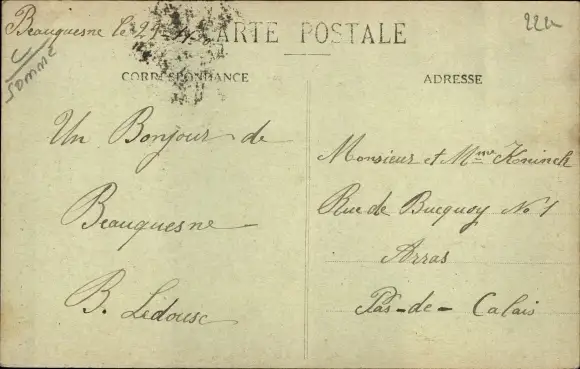 Beauquesne le 29
CARTE POSTALE
224
Somme
CORRESPONDANCE
ADRESSE
Un Bonjour de
Beauquesne
B. Ledousc
Monsieur et Mme Koninck
Rue de Bucquoy No 1
Arras
Pas-de-Calais